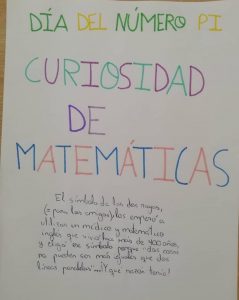 DÍA DEL NÚMERO PI
CURIOSIDAD
DE
MATEMÁTICAS
El símbolo de las dos rayas,
(= para los amigos), los empezó a
utilizar un médico y matemático
inglés que vivió hace más de 400 años,
y eligió ese símbolo porque "dos cosas
no pueden ser más iguales que dos
líneas paralelas" ¡Y que razón tenía!